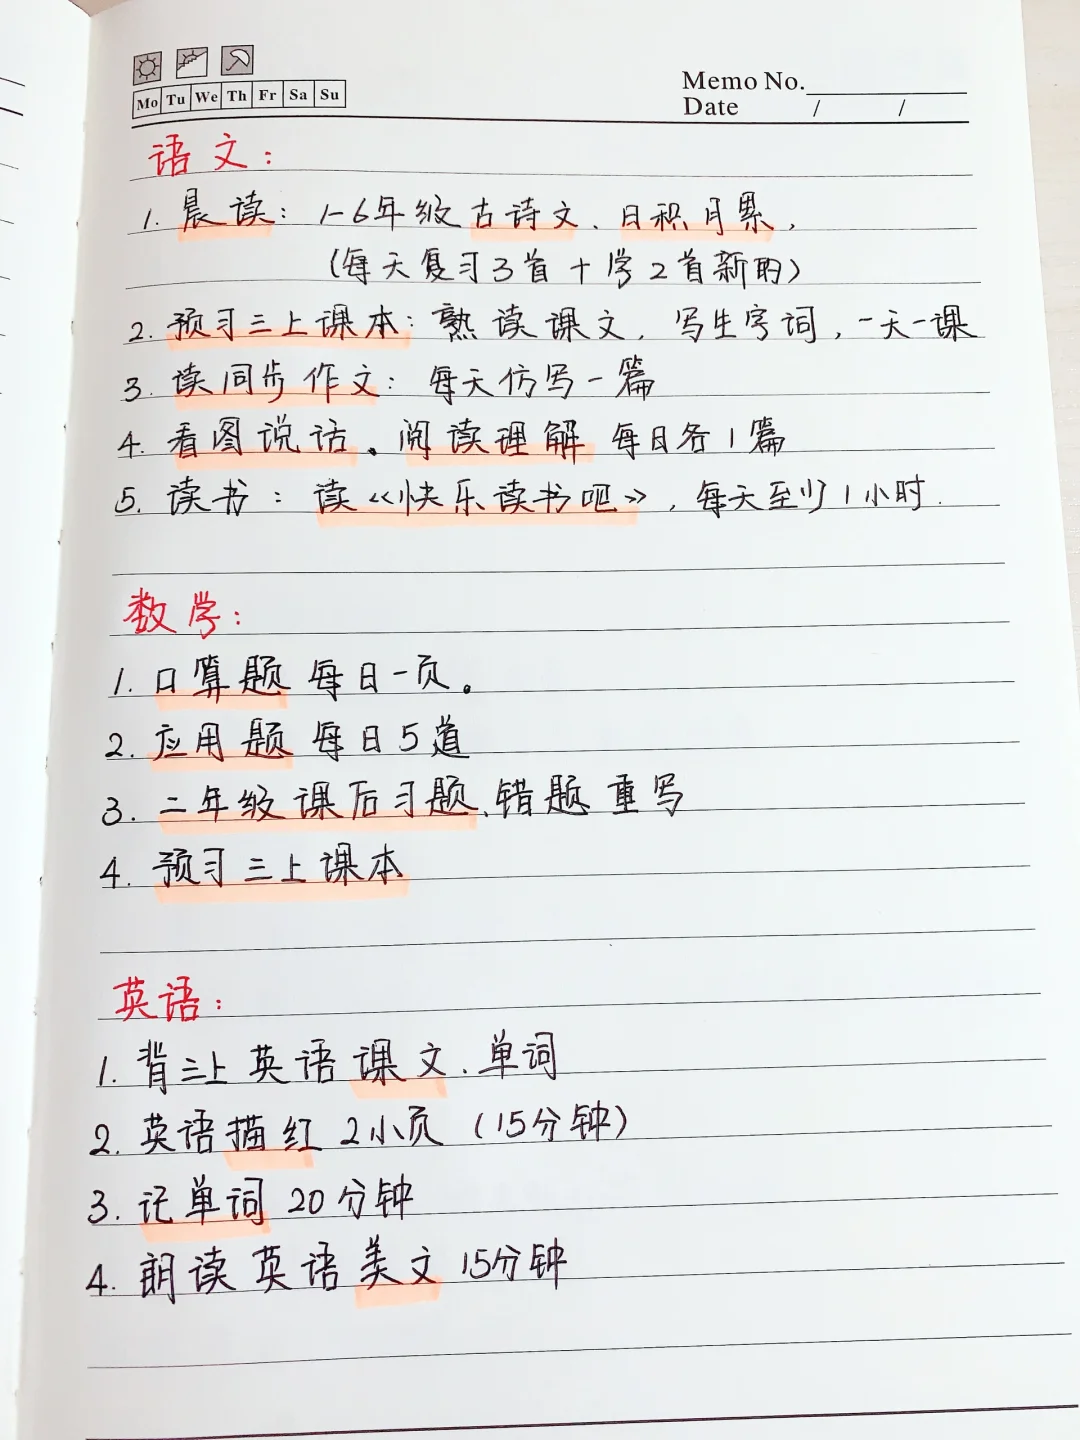 Mo Tu We Th Fr Sa Su
Memo No.
Date / /
语文：
1. 晨读：1-6年级古诗文、日积月累，
（每天复习3首＋学2首新的）
2. 预习三上课本：熟读课文，写生字词，一天一课
3. 读同步作文：每天仿写一篇
4. 看图说话。阅读理解 每日各1篇
5. 读书：读《快乐读书吧》，每天至少1小时.
数学：
1. 口算题 每日一页。
2. 应用题 每日5道
3. 二年级课后习题、错题重写
4. 预习三上课本
英语：
1. 背三上英语课文、单词
2. 英语描红 2小页（15分钟）
3. 记单词 20分钟
4. 朗读英语美文 15分钟